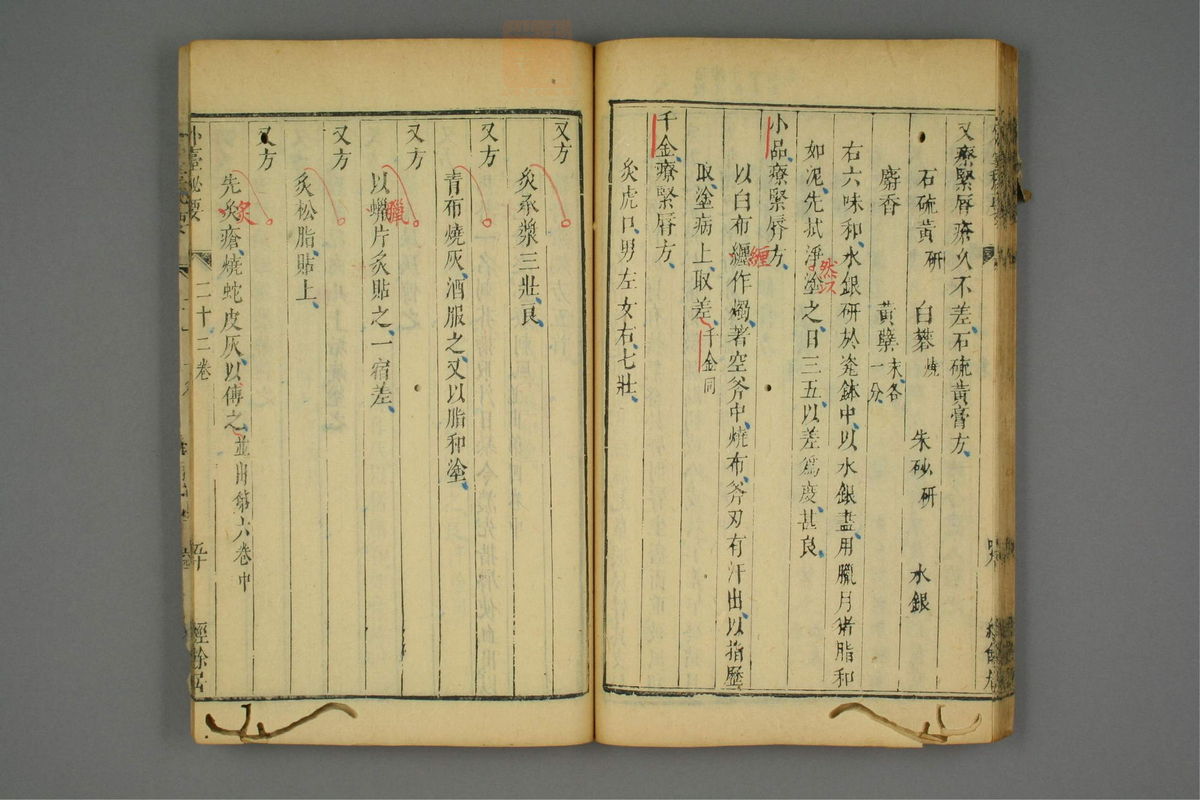 又療緊唇瘡久不差石硫黃膏方
石硫黃研 白礬燒 朱砂研 水銀
麝香 黃蘗末各一分
右六味和水銀研於瓷鉢中以水銀盡用臘月猪脂和
如泥先拭淨塗之日三五以差爲度甚良
然
小品療緊唇方
以白布纏作燭著空斧中燒布斧刃有汗出以指歷
纏
取塗病上取差千金同
千金療緊唇方
灸虎口男左女右七壯
又方
灸承漿三壯良
又方
青布燒灰酒服之又以脂和塗
又方
以蠟片炙貼之一宿差
臘
又方
炙松脂貼上
又方
先灸瘡燒蛇皮灰以傅之並出第六卷中
炙
外臺秘要 二十二卷 五十 經餘居